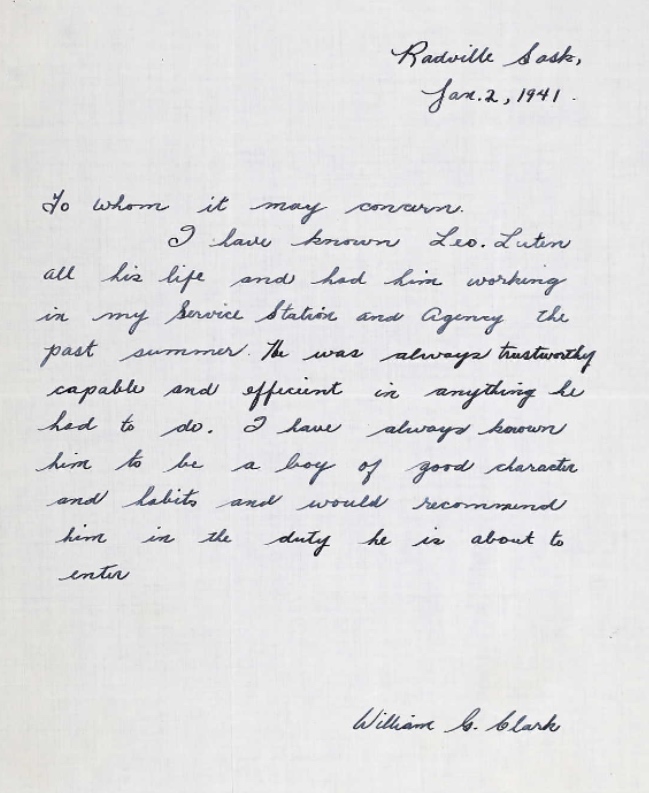 Radville Sask,
Jan. 2, 1941.
To whom it may concern.
I have known Leo. Luten
all his life and had him working
in my Service Station and Agency the
past summer. He was always trustworthy
capable and effecient in anything he
had to do. I have always known
him to be a boy of good character
and habits and would recommend
him in the duty he is about to
enter
William G. Clark